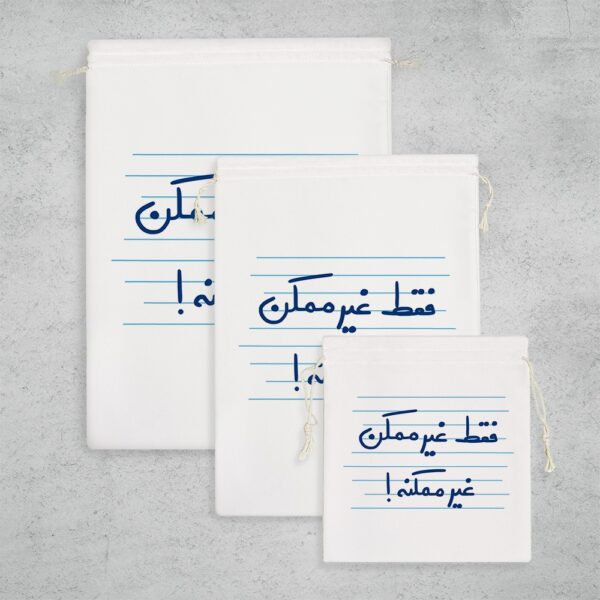 ممکن
نه!
فقط غیر ممکن
نه!
فقط غیر ممکن
غیر ممکنه!